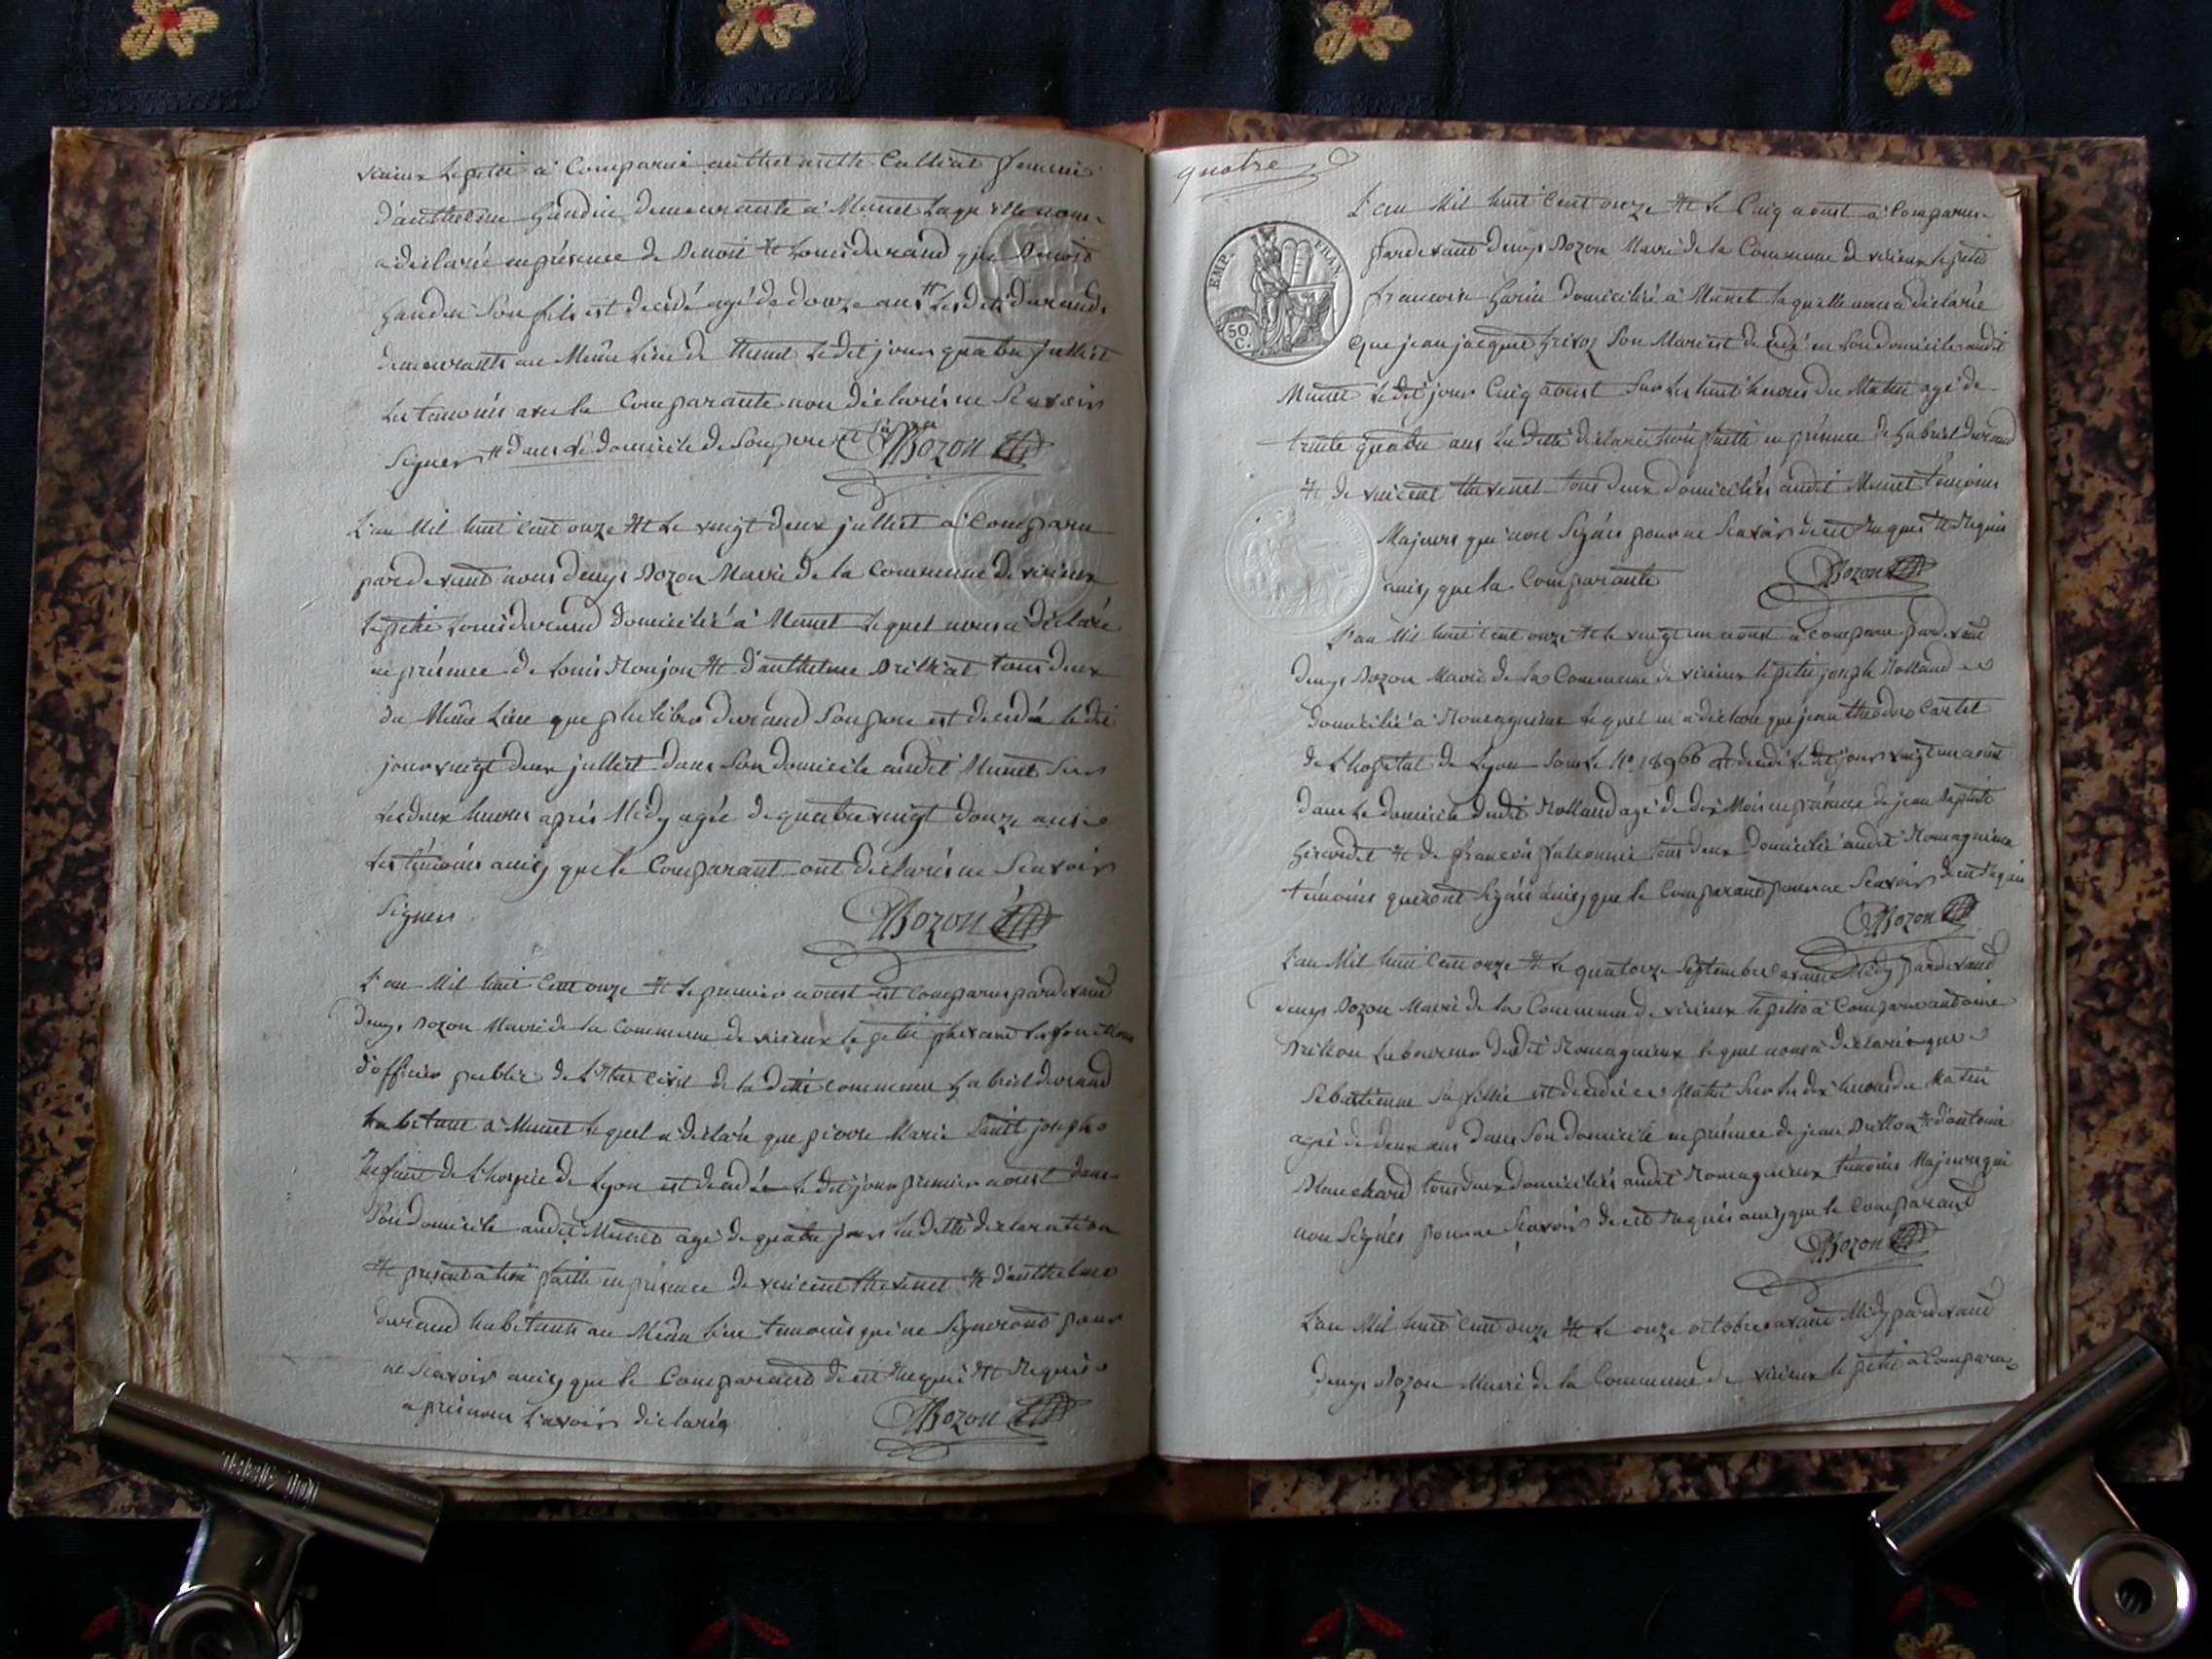 virieux le petit a Comparu anthelmette Culliat femme
d'anthelme Gandin demeurante a Munet laquelle nous
a déclarée en présence de Benoit et Louis durand que Benoit
Gandin Son fils est décédé agé de douze ans # les dits durands
demeurants au Même Lieu de Munet Ledit jour quatre juillet
Les témoins avec la Comparante non déclarés ne Scavoir
Signer # dans le domicile de Son pere
DBozon
L'an Mil huit Cent onze et le vingt deux juillest a Comparu
pardevant nous denys Bozon Maire de la Commune de virieux
le petit Louis durand domicilié à Munet Lequel nous a déclaré
en présence de Louis Monjon et d'anthelme Brilliat tous deux
du Même Lieu que philiber durand Son pere est décédé le dit
jour vingt deux juillest dans Son domicile audit Munet Sur
Les deux heures après Midy agée de quatre vingt douze ans
Les témoins ainsy que le Comparant ont déclarés ne Scavoir
Signer
DBozon
L'an Mil huit Cent onze et le premier aoust est Comparus pardevant
denys Bozon Maire de la Commune de virieux le petit faisant les fonctions
d'officier public de L'Etat Civil de la ditte commune Gabriel durand
habitant a Munet Lequel a déclaré que pierre Marie Saint joseph
Enfant de L'hospice de Lyon est décédé Le dit jour premier aoust dans
Son domicile audit Munet agé de quatre jours La ditte déclaration
et présentation faitte en présence de vincent thevenet et d'anthelme
durand habitants au Même Lieu témoins qui ne Signeront pour
ne Scavoir ainsy que le Comparand de ce Enquis et Requis
après nous L'avoir déclaré
DBozon
quatre
L'an Mil huit Cent onze et Le Cinq aoust a Comparue
pardevant denys Bozon Maire de la Commune de virieux le petit
francoise Garin domiciliée à Munet laquelle nous a déclarée
EMP. FRAN.
50. C.
que jean jacques Grivoz Son Mari est décédé en Son domicile audit
Munet Le dit jour Cinq aoust Sur Les huit heures du Matin agé de
trente quatre ans La ditte déclaration faitte en présence de Gabriel durand
et de vincent thevenet tous deux domiciliés audit Munet témoins
Majeurs qui non Signés pour ne Scavoir de ce Enquis et Requis
ainsy que la Comparante
DBozon
L'an Mil huit Cent onze et le vingt un aoust a comparu pardevant
denys Bozon Maire de la Commune de virieux le petit joseph Rolland
domicilié a Romagnieux Lequel m'a déclaré que jean theodore Cartet
de L'hopital de Lyon Sous Le N°. 18966 est décédé Le dit jour vingt un aoust
dans Le domicile dudit Rolland agé de dix Mois en présence de jean Baptiste
Girerdet et de francois falconnet tous deux domicilié audit Romagnieux
témoins qui nont Signés ainsy que le Comparand pour ne Scavoir de ce Enquis
DBozon
L'an Mil huit Cent onze et le quatorze Septembre avant Midy pardevant
denys Bozon Maire de la Commune de virieux le petit a Comparu antoine
Brillon Laboureur dudit Romagnieux lequel nous a déclaré que
Sebastienne Sa fille est décédée ce Matin Sur les dix heures du Matin
agée de deux ans dans Son domicile en présence de jean Brillon et d'antoine
Blanchard tous deux domiciliés audit Romagnieux témoins Majeurs qui
non Signés pour ne Scavoir de ce Enquis ainsy que le Comparand
DBozon
L'an Mil huit Cent onze et Le onze octobre avant Midy pardevant
denys Bozon Maire de la Commune de virieux le petit a Comparu